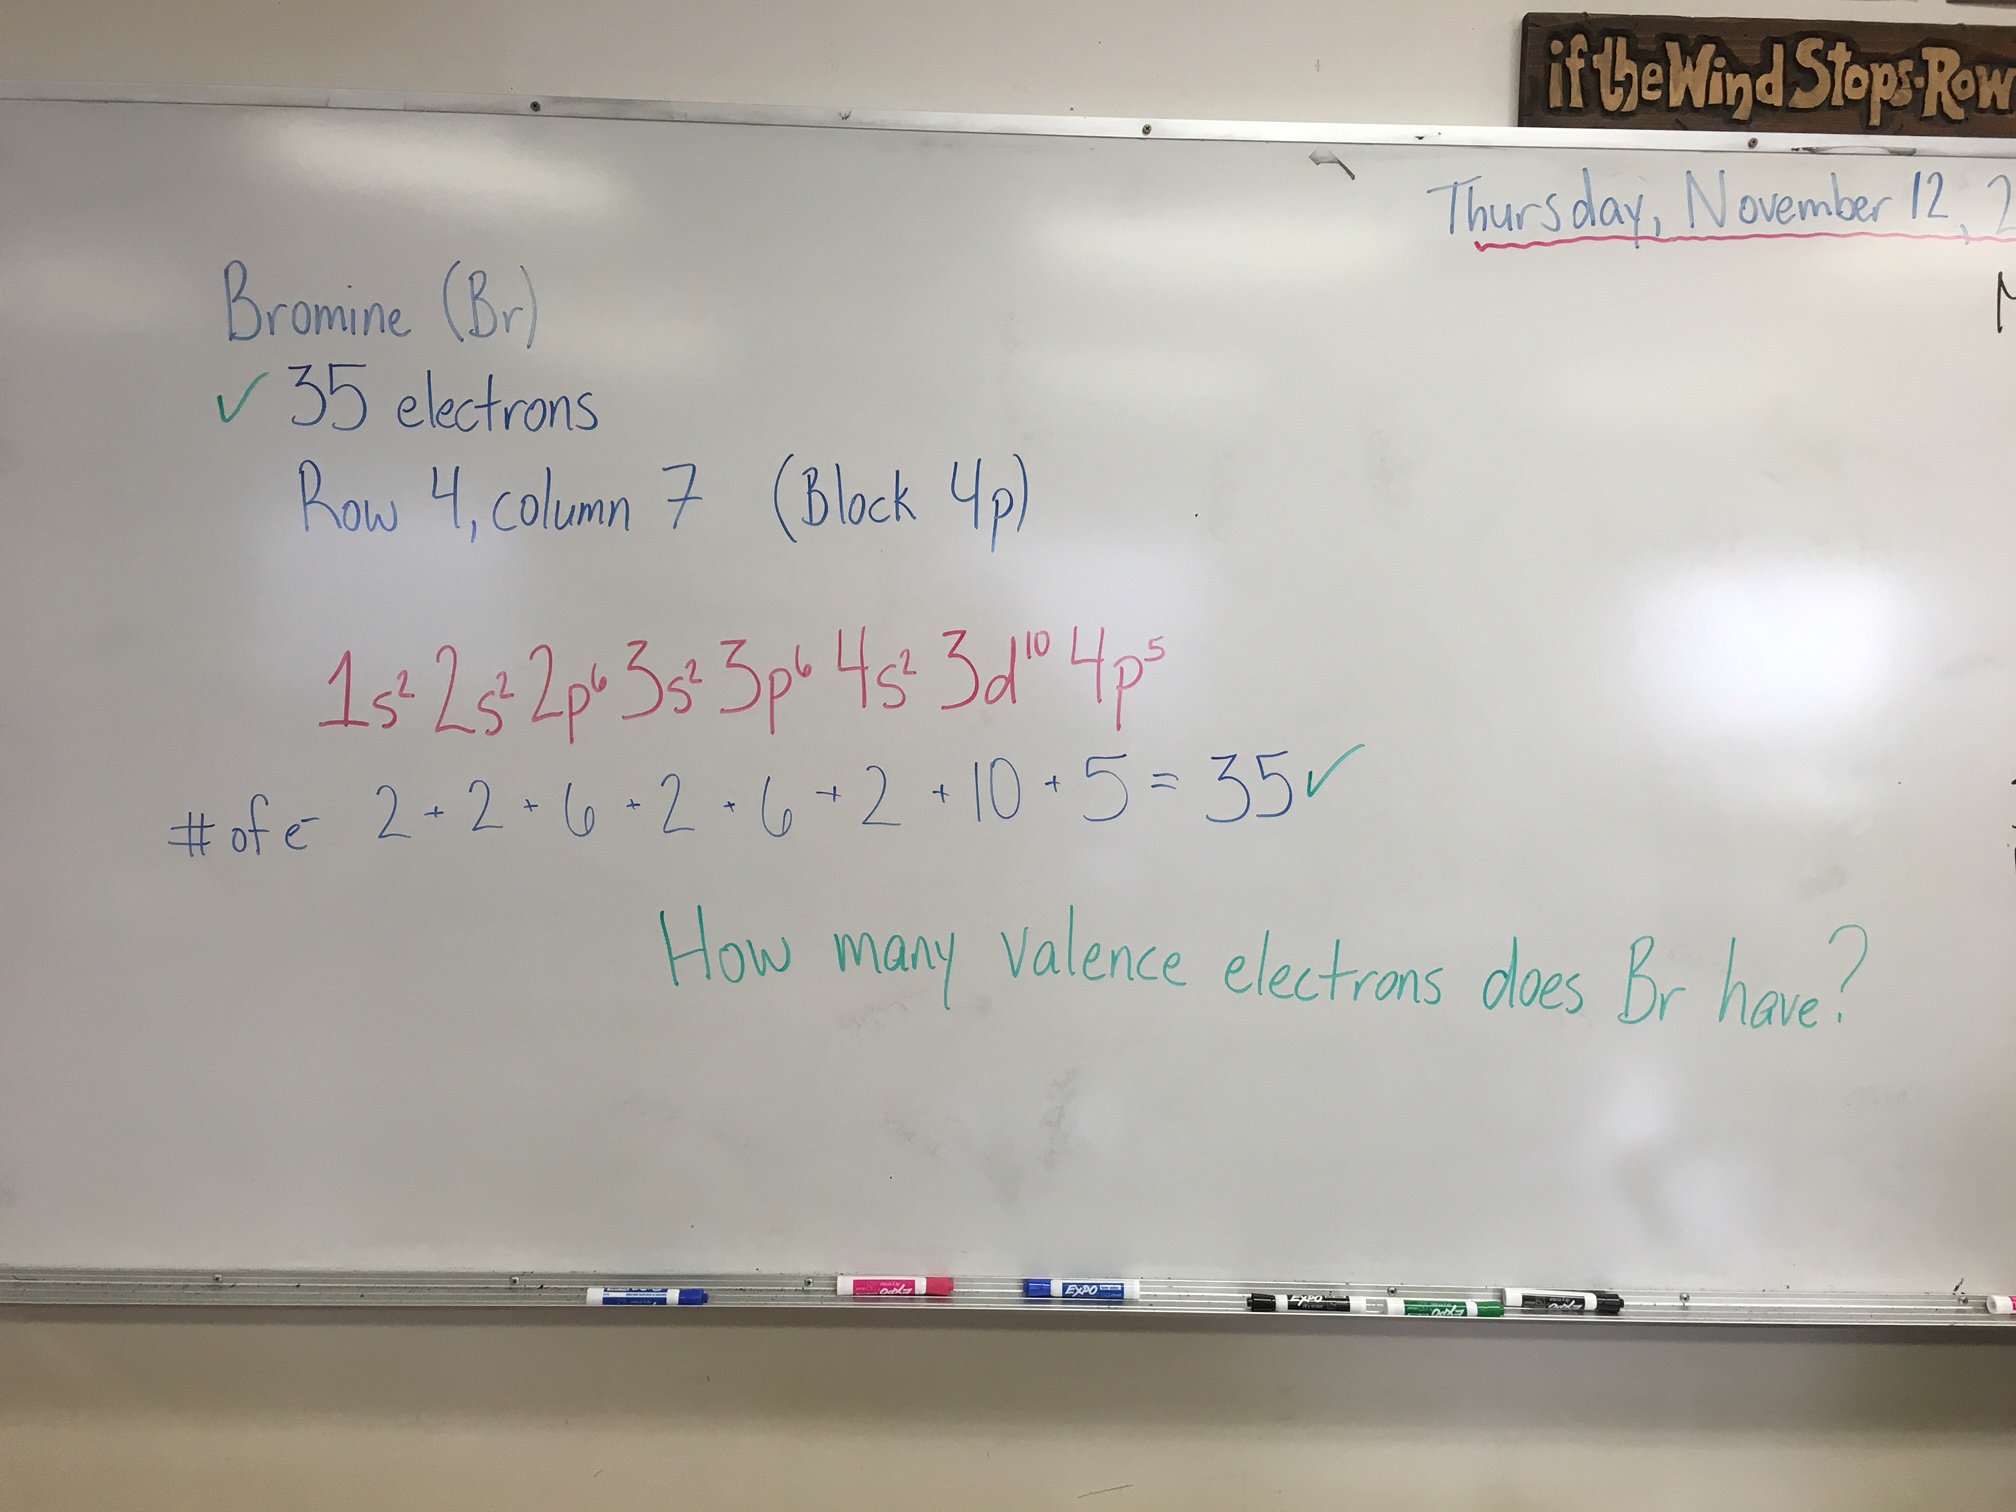 if the Wind Stops-Row
Thursday, November 12, 2
Bromine (Br)
✓ 35 electrons
Row 4, column 7 (Block 4p)
1s² 2s² 2p⁶ 3s² 3p⁶ 4s² 3d¹⁰ 4p⁵
# of e⁻ 2 + 2 + 6 + 2 + 6 + 2 + 10 + 5 = 35 ✓
How many valence electrons does Br have?
EXPO
EXPO
EXPO
EXPO
EXPO